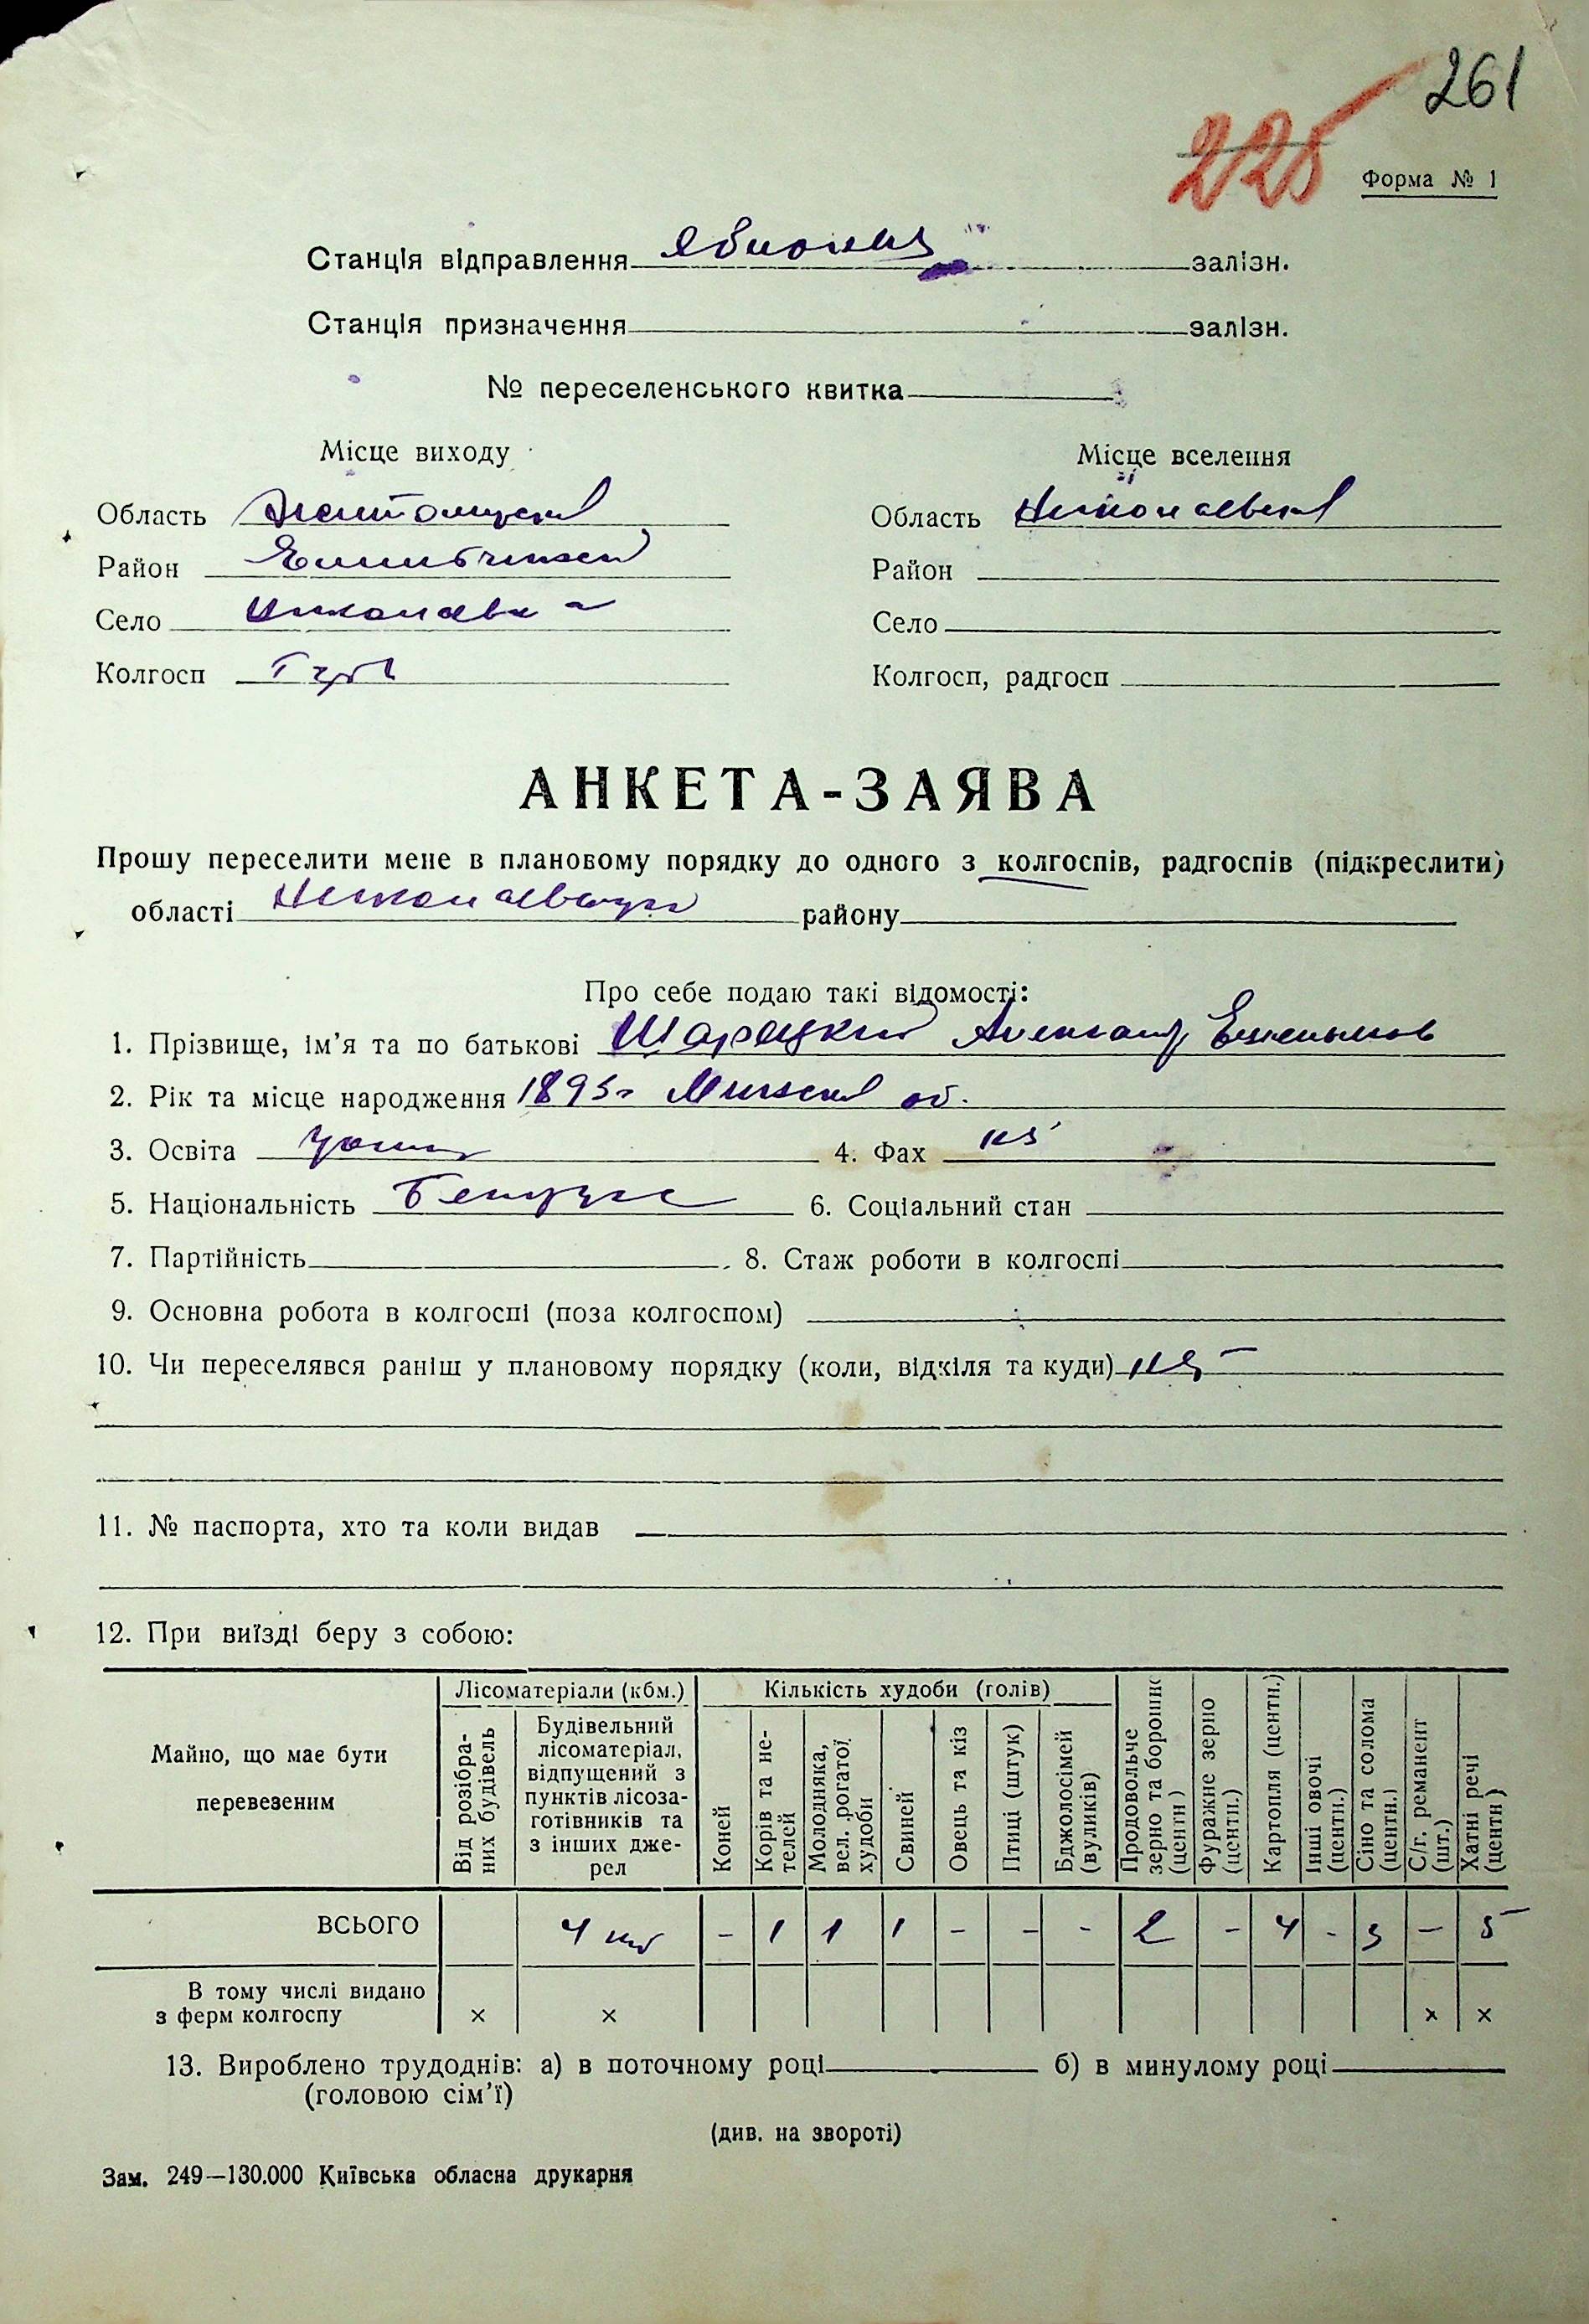 261
225
Форма № 1
Станція відправлення Яблонец залізн.
Станція призначення залізн.
№ переселенського квитка
Місце виходу Місце вселення
Область Житомирск Область Николаевск
Район Район
Село Николаевка Село
Колгосп Колгосп, радгосп
АНКЕТА-ЗАЯВА
Прошу переселити мене в плановому порядку до одного з колгоспів, радгоспів (підкреслити)
області району
Про себе подаю такі відомості:
1. Прізвище, ім’я та по батькові Александр
2. Рік та місце народження 1893г Минск об.
3. Освіта 4. Фах
5. Національність Белорус 6. Соціальний стан
7. Партійність 8. Стаж роботи в колгоспі
9. Основна робота в колгоспі (поза колгоспом)
10. Чи переселявся раніш у плановому порядку (коли, відкіля та куди) нет
11. № паспорта, хто та коли видав
12. При виїзді беру з собою:
Майно, що має бути перевезеним
Лісоматеріали (кбм.)
Від розібраних будівель
Будівельний лісоматеріал, відпущений з пунктів лісозаготівників та з інших джерел
Кількість худоби (голів)
Коней
Корів та нетелей
Молодняка, вел. рогатої худоби
Свиней
Овець та кіз
Птиці (штук)
Бджолосімей (вуликів)
Продовольче зерно та борошно (центн)
Фуражне зерно (центн.)
Картопля (центн.)
Інші овочі (центн.)
Сіно та солома (центн.)
С/г. реманент (шт.)
Хатні речі (центн)
ВСЬОГО 4 - 1 1 1 - - - 2 - 4 - 3 - 5
В тому числі видано
з ферм колгоспу × × × ×
13. Вироблено трудоднів: а) в поточному році б) в минулому році
(головою сім’ї)
(див. на звороті)
Зам. 249—130.000 Київська обласна друкарня